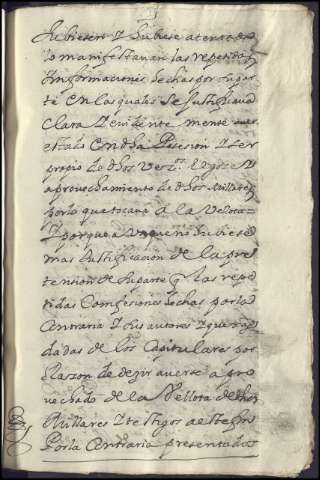 hubiesen Y hubiese atento a
lo manifestauan las repetidas
Informaciones hechas por su par
te en las quales se justificaua
Clara Y euidente mente auer
estado con dha Posesion Y ser
propio de dhos Vezos el goze Y
aprouechamiento de dhos Millares
por lo que tocaua a la Vellota
Y porque a Vnque no hubiese
mas Justificacion de la pre
tension de su parte q las repe
tidas Comfesiones hechas por la
Contraria Y sus autores Y quera
dadas de los Capitulares por
Razon de dezir auerse apro
uechado de la Vellota de dhos
Millares Y testigos a este fin
Por la Contraria presentados